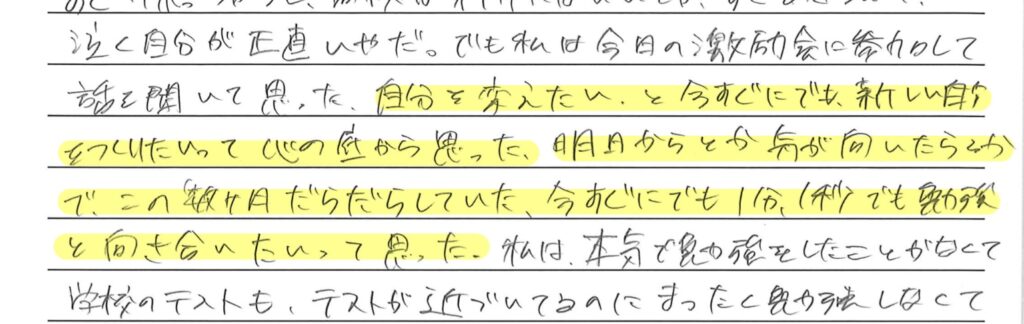 泣く自分が正直いやだ。でも私は今日の激励会に参加して
話を聞いて思った、自分を変えたい、と今すぐにでも、新しい自分
をつくりたいって心の底から思った、明日からとか気が向いたらとか
で、この数ヶ月だらだらしていた、今すぐにでも1分、1秒でも勉強
と向き合いたいって思った。私は、本気で勉強をしたことがなくて
学校のテストも、テストが近づいてるのにまったく勉強しなくて